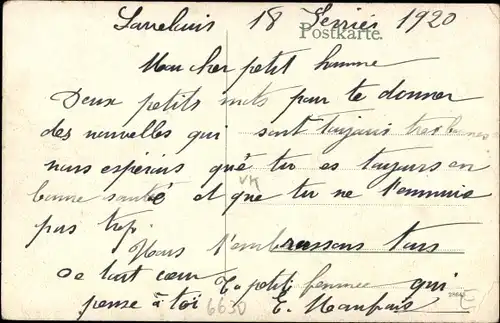 Sarrelouis 18 Février 1920
Postkarte.
Mon cher petit homme
Deux petits mots pour te donner
des nouvelles qui sont toujours tres bonnes
nous espérons que tu es toujours en
bonne santé et que tu ne t'ennuie
pas trop.
VK
Nous t'embrassons tous
de tout cœur
Ta petit femme qui
pense à toi
6630